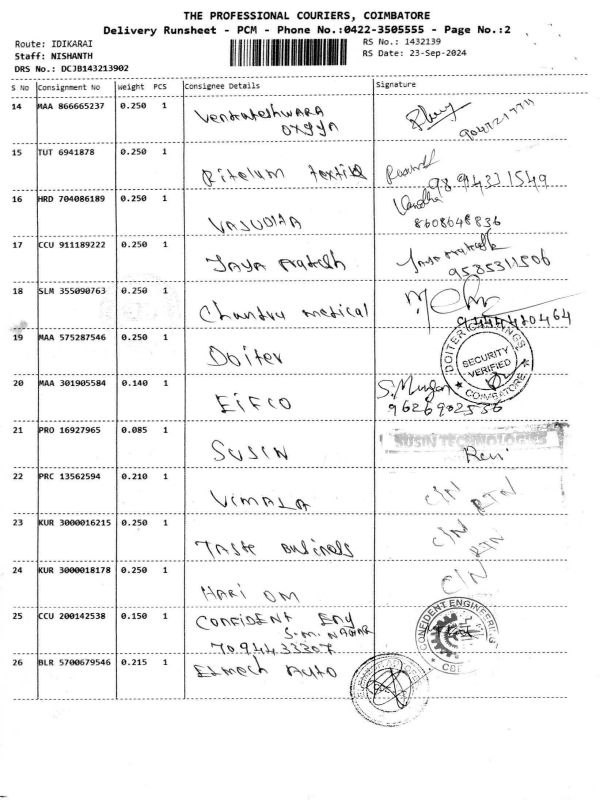 THE PROFESSIONAL COURIERS, COIMBATORE
Delivery Runsheet - PCM - Phone No.:0422-3505555 - Page No.:2
Route: IDIKARAI
Staff: NISHANTH
DRS No.: DCJB143213902
RS No.: 1432139
RS Date: 23-Sep-2024
S No Consignment No Weight PCS Consignee Details Signature
14 MAA 866665237 0.250 1 Venkateshwara
15 TUT 6941878 0.250 1 textile
9894331549
16 HRD 704086189 0.250 1
8608648836
17 CCU 911189222 0.250 1 Jaya Prakash
9585311506
18 SLM 355090763 0.250 1 Chandru medical
9444420464
19 MAA 575287546 0.250 1 Doiter
DOITER CASTINGS
SECURITY
VERIFIED
COIMBATORE
20 MAA 301905584 0.140 1 EIFCO S. Murgan
9626902536
21 PRO 16927965 0.085 1 SUSIN
SUSIN TECHNOLOGIES
Ravi
22 PRC 13562594 0.210 1 VIMALA C/N
RTN
23 KUR 3000016215 0.250 1 Taste C/N
RTN
24 KUR 3000018178 0.250 1 HARI OM C/N
25 CCU 200142538 0.150 1 CONFIDENT Eng
S.M. NAGAR
7094433307
CONFIDENT ENGINEERING
26 BLR 5700679546 0.215 1 Elmech Auto